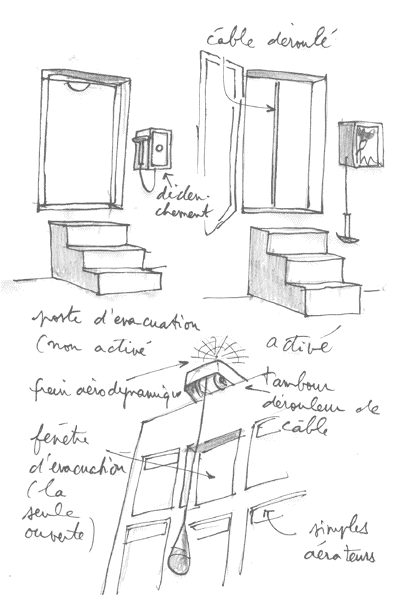 câble déroulé
déclen-
chement
poste d'évacuation
(non activé
activé
frein aérodynamique
tambour
dérouleur de
câble
fenêtre
d'évacuation
(la
seule
ouverte)
simples
aérateurs